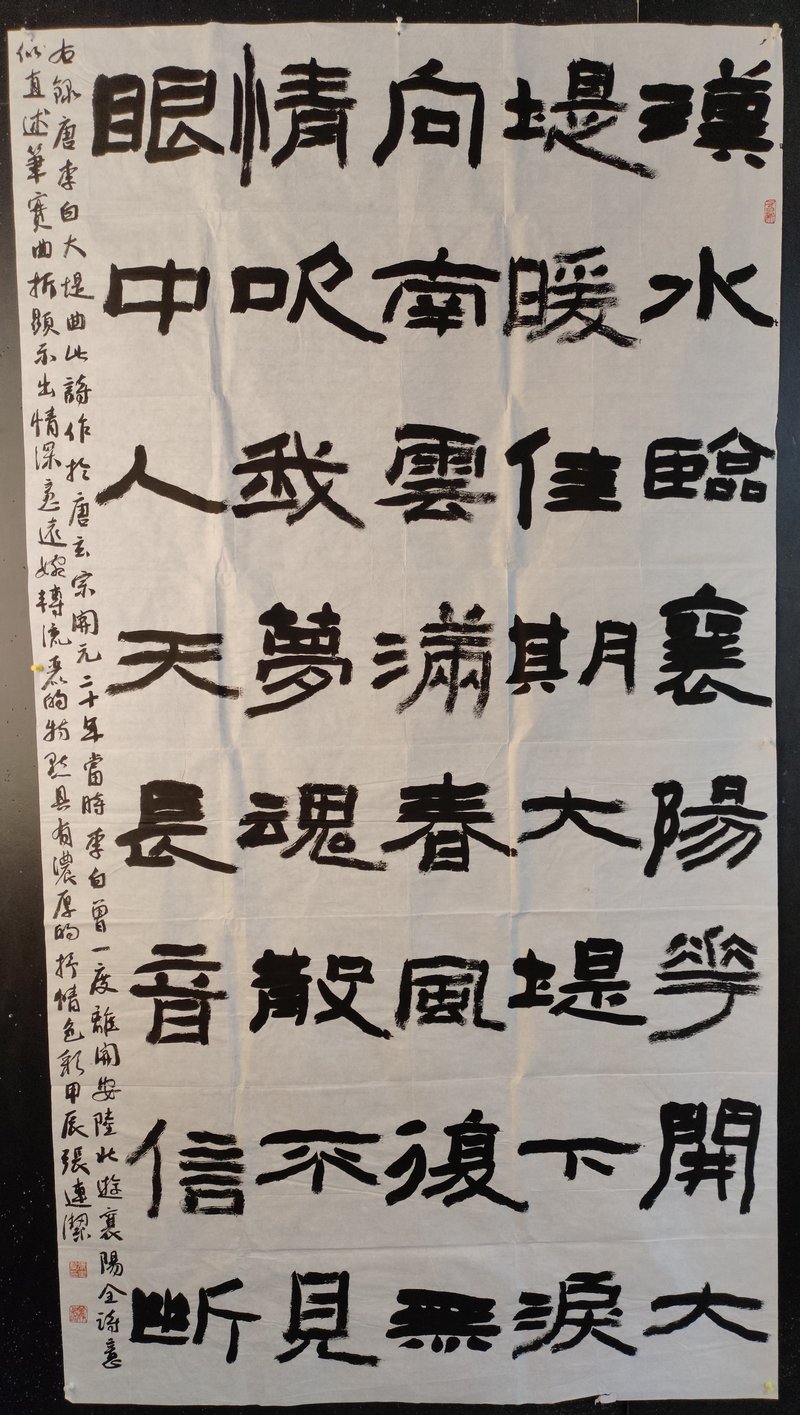 漢水臨襄陽華開大
堤暖佳期大堤下淚
向南雲滿春風復無
情吹我夢魂散不見
眼中人天長音信斷
右録唐李白大堤曲此詩作於唐玄宗開元二十年當時李白曾一度離開安陸北遊襄陽全詩意
似直述筆實曲折顯示出情深意遠婉轉流麗的特點具有濃厚的抒情色彩甲辰張連潔